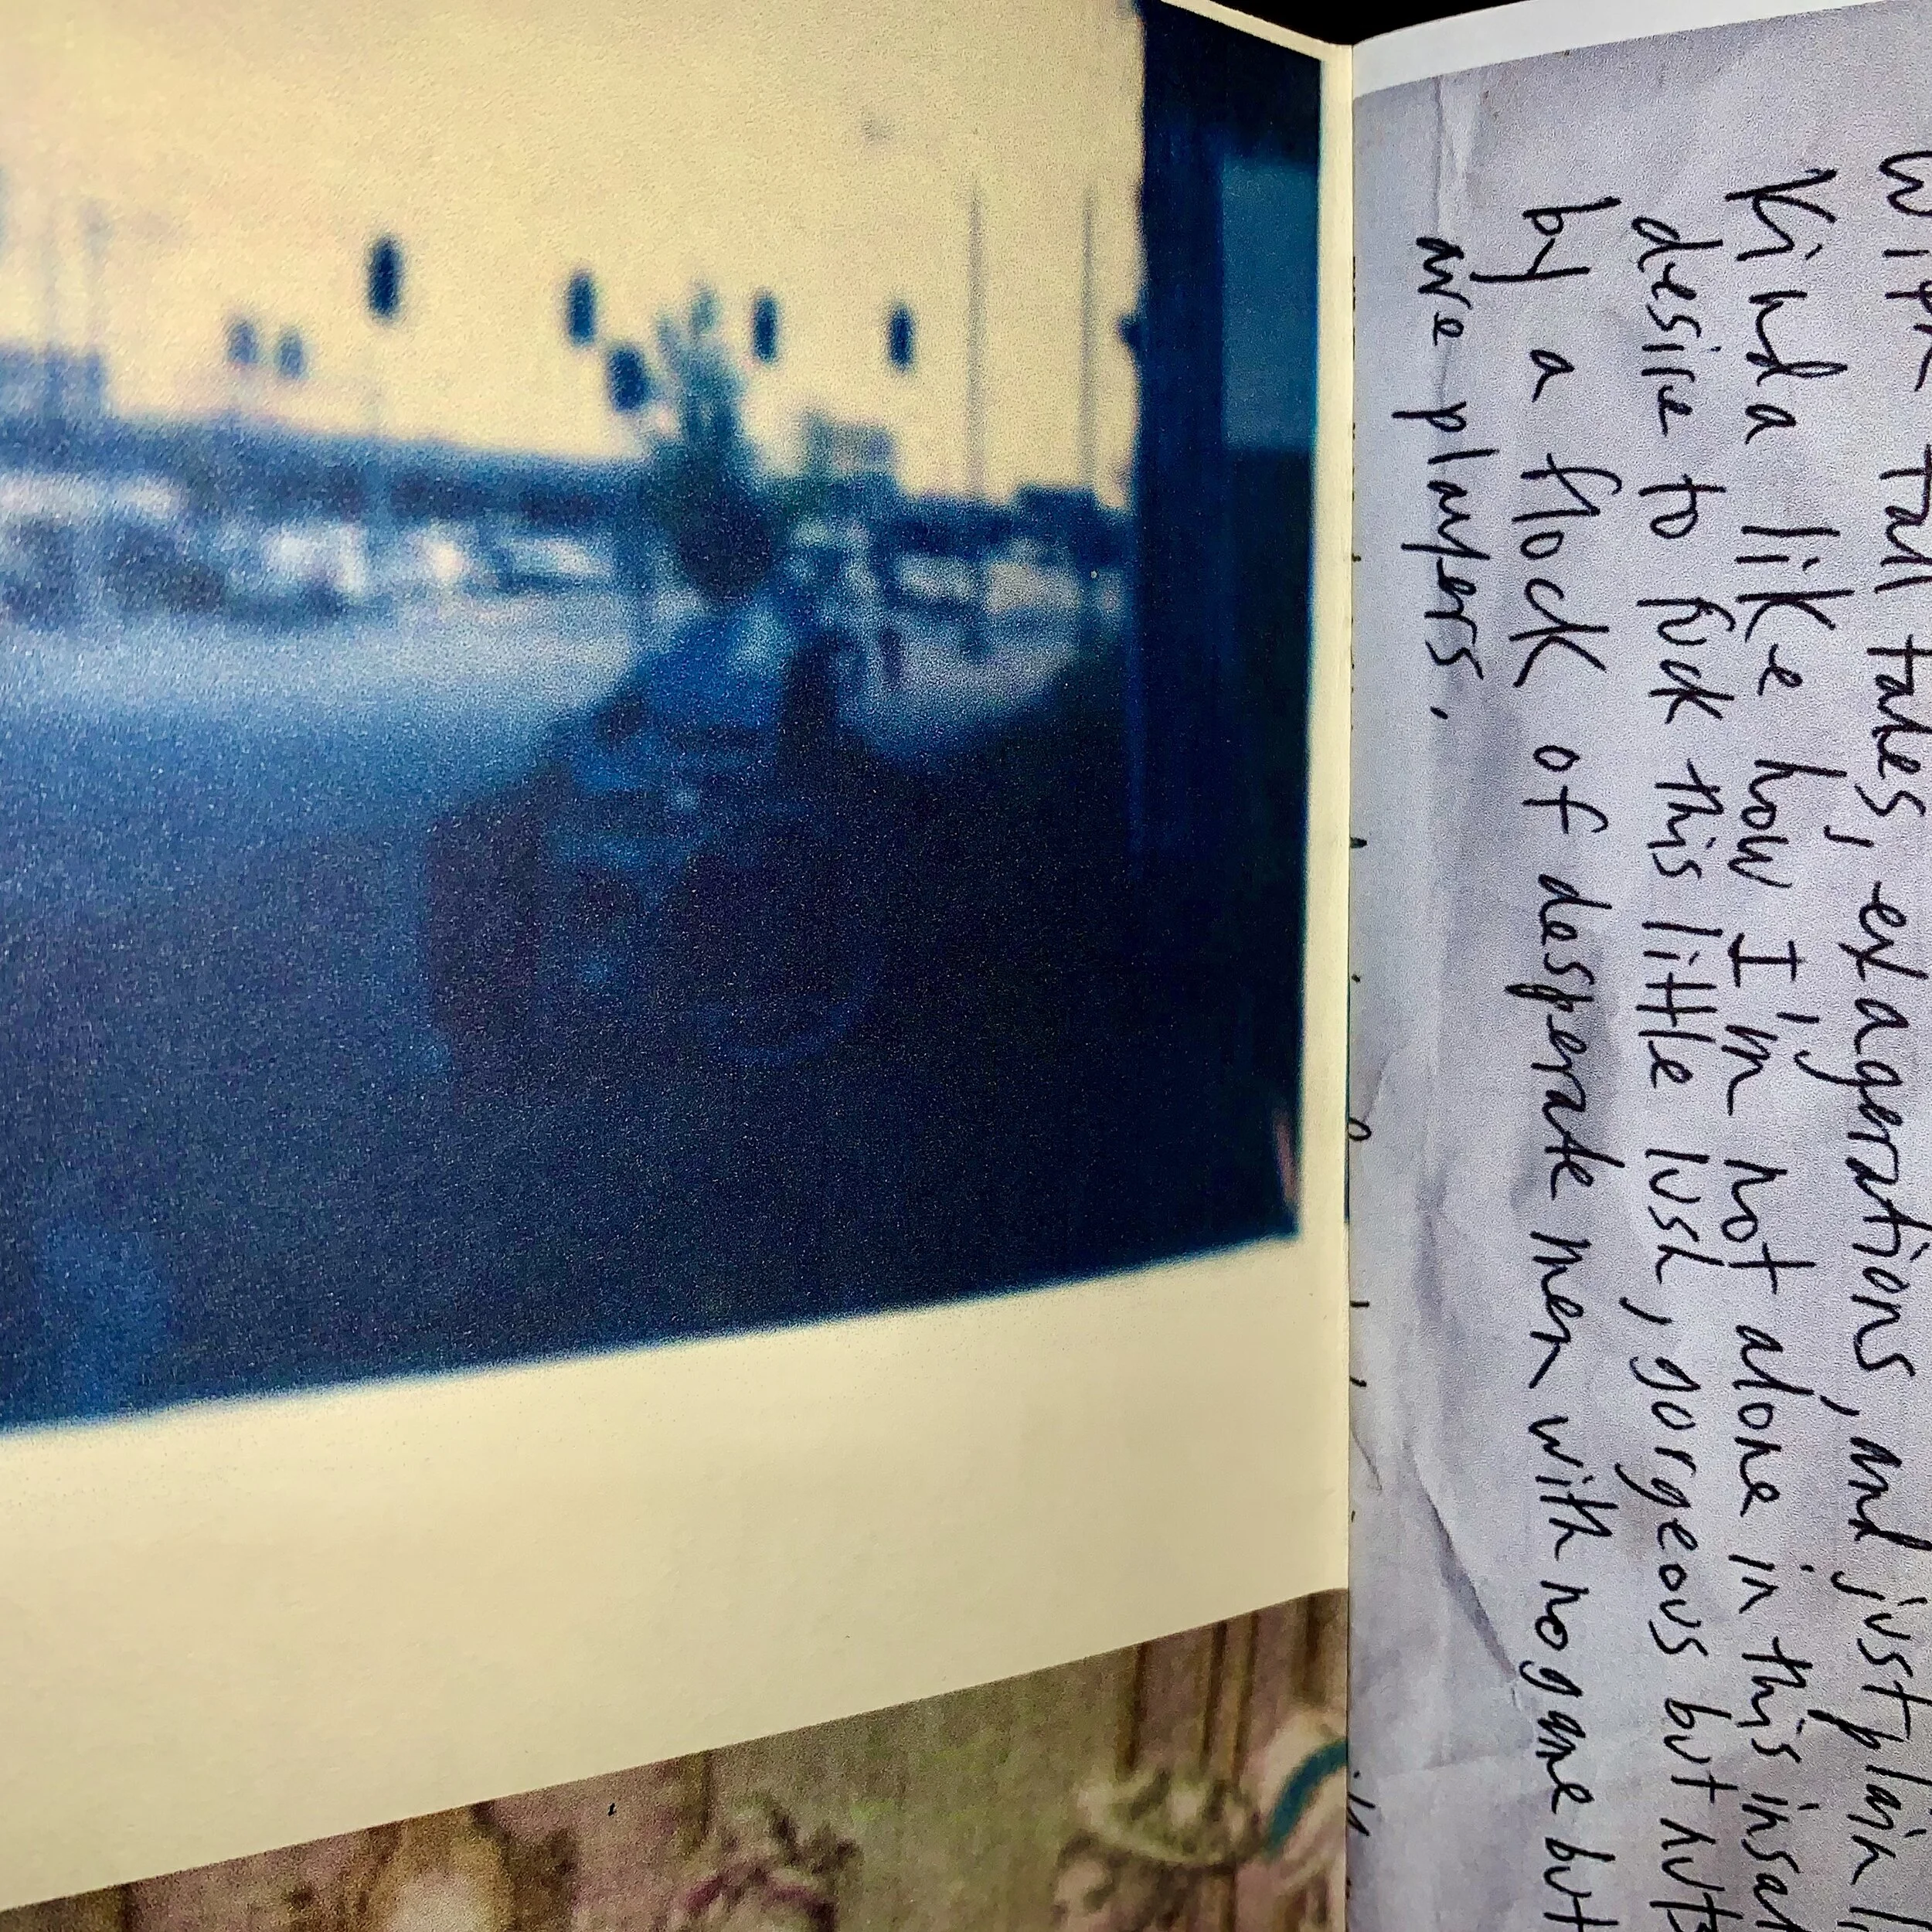 with tall tales, exagerations, and just plain
Kinda like how I'm not alone in this insa
desire to fuck this little lush, gorgeous but nuts
by a flock of desperate men with no game but
are players.